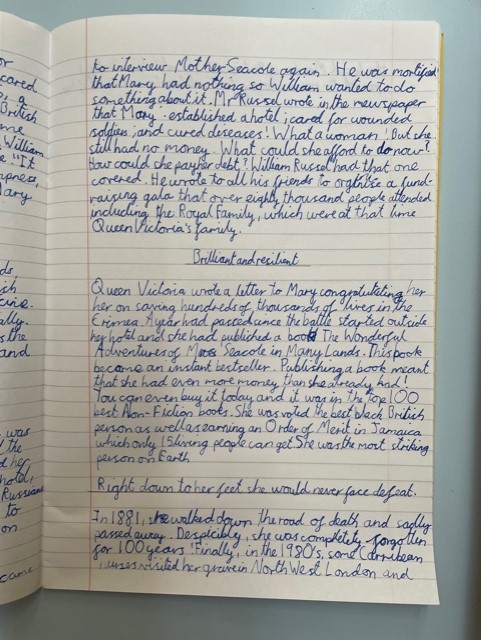 or
cared
or a
British
me
William
e "It
mpness,
Mary
ds,
ish
cine.
ally.
s the
and
was
the
d her
hotel,
Russians
to
on
came
to interview Mother Seacole again. He was mortified
that Mary had nothing so William wanted to do
something about it. Mr Russel wrote in the newspaper
that Mary : established a hotel ; cared for wounded
soldiers ; and cured deseaces! What a woman! But she
still had no money. What could she afford to do now?
How could she pay her debt? William Russel had that one
covered. He wrote to all his friends to orgthise a fund-
raising gala that over eighty thousand people attended
including the Royal Family, which were at that time
Queen Victoria's family.
Brilliant and resilient
Queen Victoria wrote a letter to Mary congratulating her
her on saving hundreds of thousands of lives in the
Crimea. A year had passed since the battle started outside
her hotel and she had published a book The Wonderful
Adventures of Mrs Seacole in Many Lands. This book
became an instant bestseller. Publishing a book meant
that she had even more money than she already had!
You can even buy it today and it was in the top 100
best Non-Fiction books. She was voted the best black British
person as well as earning an Order of Merit in Jamaica
which only 15 living people can get. She was the most striking
person on Earth
Right down to her feet, she would never face defeat.
In 1881, she walked down the road of death and sadly
passed away. Despicibly, she was completely forgotten
for 100 years! Finally, in the 1980's, some Carribean
nurses visited her grave in North West London and